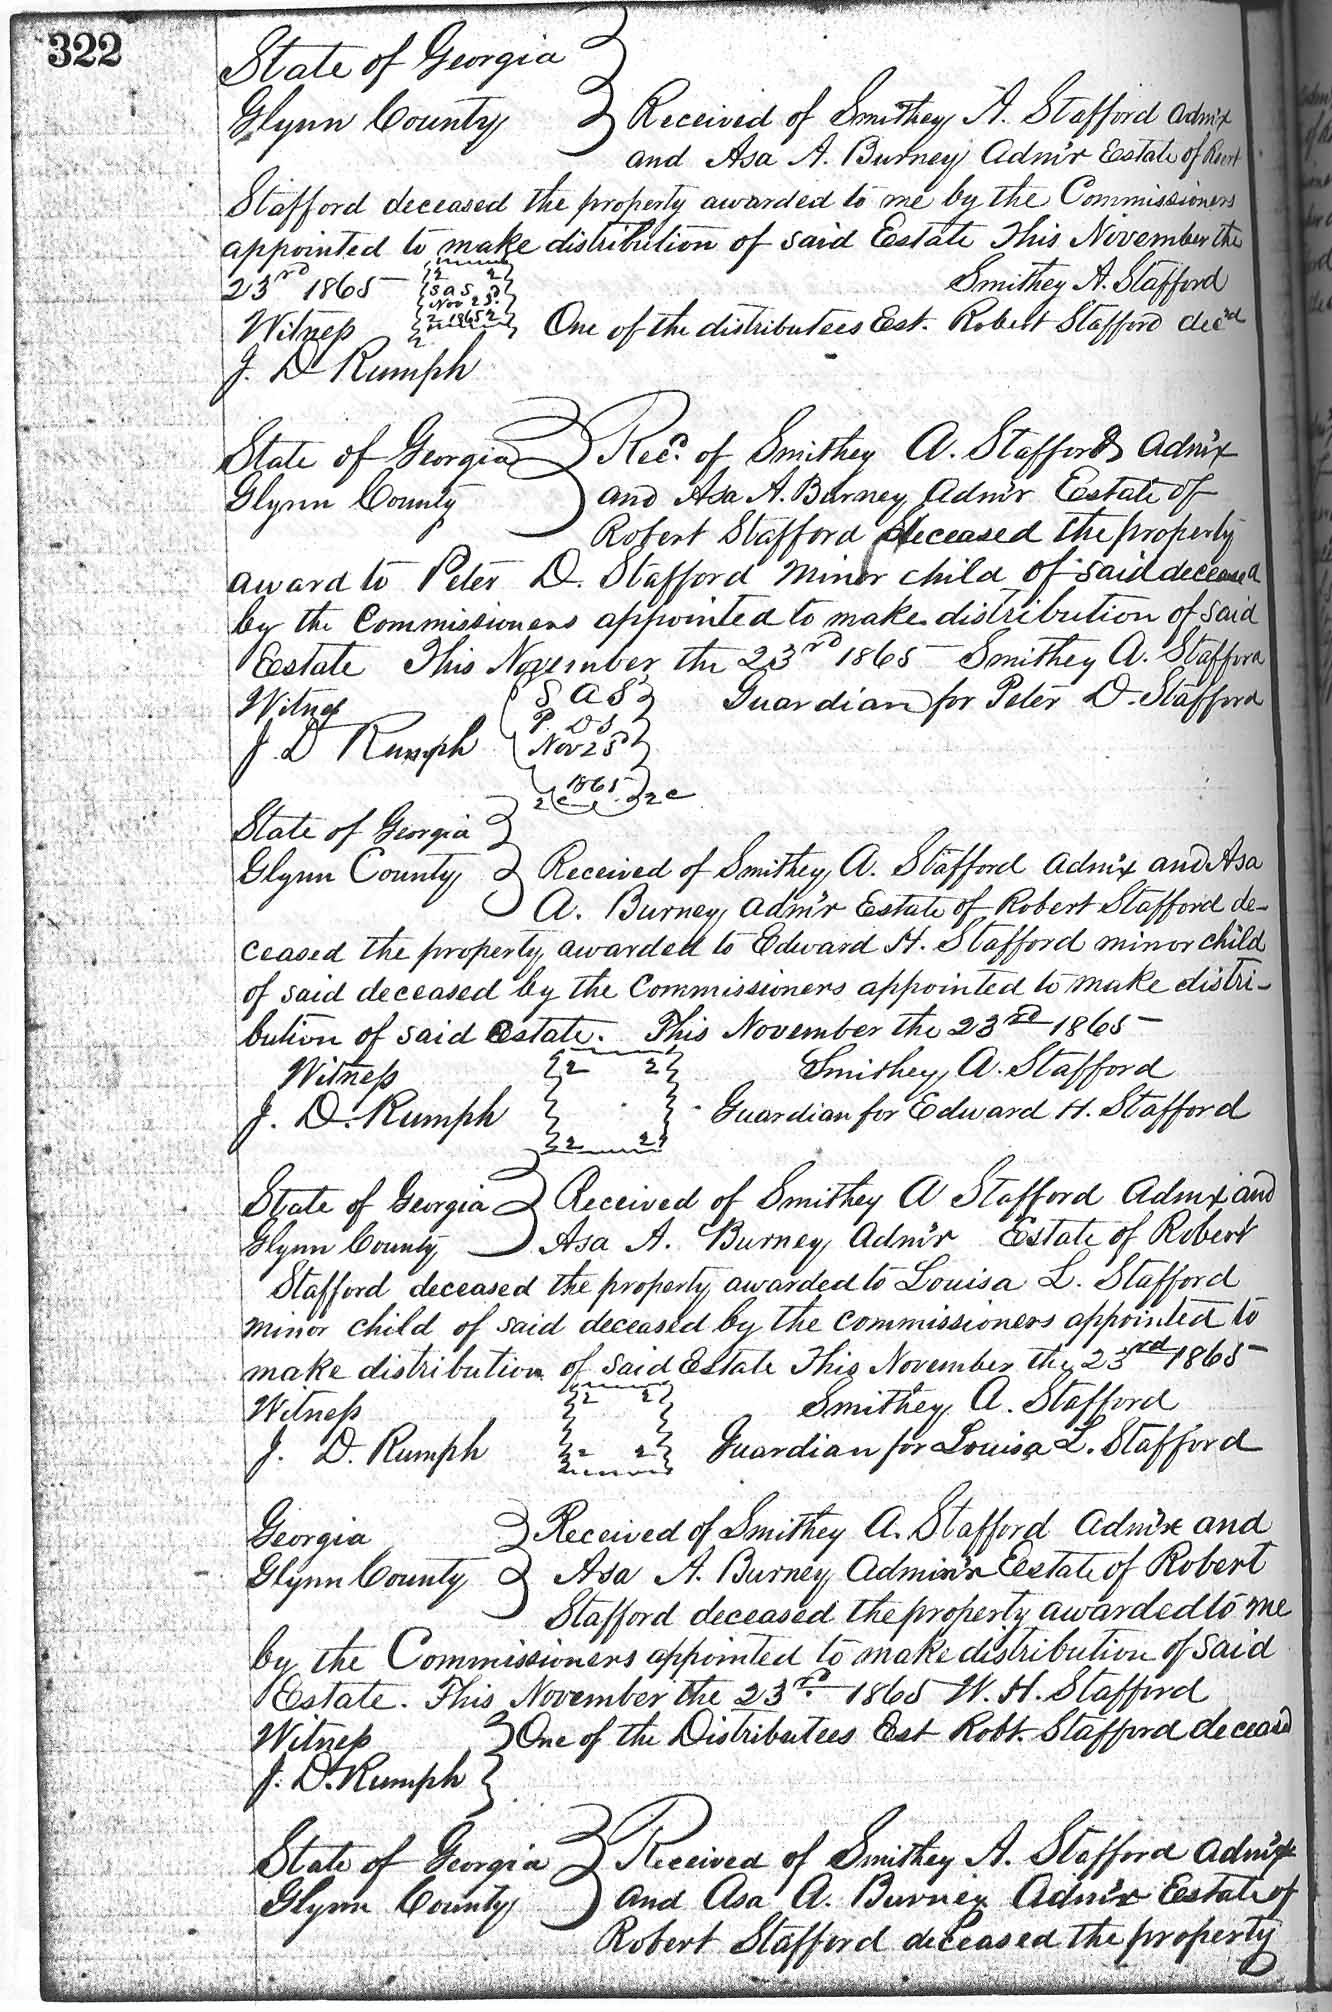 322
State of Georgia
Glynn County Received of Smithey A. Stafford Admx
and Asa A. Burney Admr Estate of Robert
Stafford deceased the property awarded to me by the Commissioners
appointed to make distribution of said Estate This November the
23rd 1865 Smithey A. Stafford
2 2
S A S
Nov 25
2 1865 2
Witness One of the distributees Est. Robert Stafford decd
J. D Rumph
State of Georgia Recd. of Smithey A. Stafford Admx
Glynn County and Asa A. Burney Admr Estate of
Robert Stafford deceased the property
award to Peter D. Stafford Minor child of said deceased
by the Commissioners appointed to make distribution of said
Estate This November the 23rd 1865 Smithey A. Stafford
Witness S A S Guardian for Peter D. Stafford
P D S
J. D Rumph Nov 25
1865
2c 2c
State of Georgia
Glynn County Received of Smithey A. Stafford Admx and Asa
A. Burney Admr Estate of Robert Stafford de-
ceased the property awarded to Edward H. Stafford minor child
of said deceased by the Commissioners appointed to make distri-
bution of said Estate. This November the 23rd 1865
Witness 2 2 Smithey A. Stafford
J. D. Rumph Guardian for Edward H. Stafford
2 2
State of Georgia Received of Smithey A Stafford Admx and
Glynn County Asa A. Burney Admr Estate of Robert
Stafford deceased the property awarded to Louisa L. Stafford
minor child of said deceased by the commissioners appointed to
make distribution of said Estate This November the 23rd 1865
Witness 2 2 Smithey A. Stafford
J. D. Rumph 2 2 Guardian for Louisa L. Stafford
Georgia Received of Smithey A. Stafford Admx and
Glynn County Asa A. Burney Adminr Estate of Robert
Stafford deceased the property awarded to me
by the Commissioners appointed to make distribution of said
Estate. This November the 23rd 1865 W. H. Stafford
Witness One of the Distributees Est Robt. Stafford deceased
J. D. Rumph
State of Georgia Received of Smithey A. Stafford Admx
Glynn County and Asa A. Burney Admr Estate of
Robert Stafford deceased the property